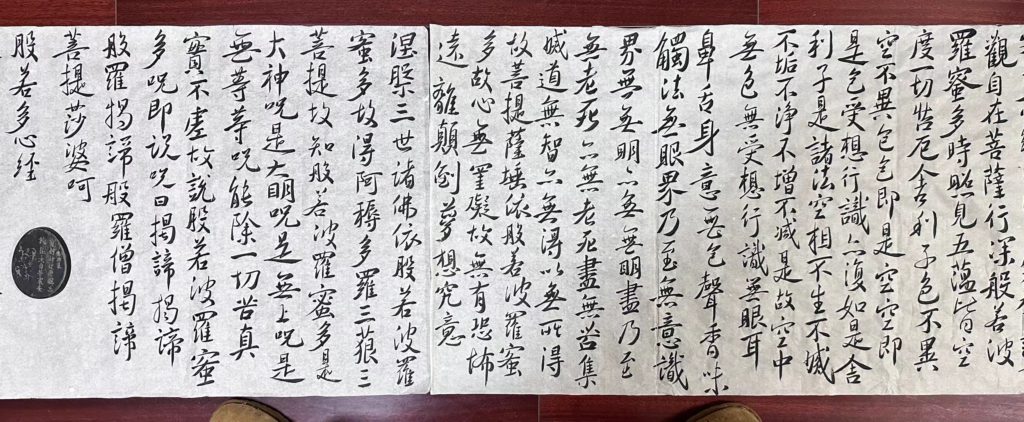 觀自在菩薩行深般若波
羅蜜多時照見五蘊皆空
度一切苦厄舍利子色不異
空不異色色即是空空即
是色受想行識亦復如是舍
利子是諸法空相不生不滅
不垢不淨不增不減是故空中
無色無受想行識無眼耳
鼻舌身意無色聲香味
觸法無眼界乃至無意識
界無無明亦無無明盡乃至
無老死亦無老死盡無苦集
滅道無智亦無得以無所得
故菩提薩埵依般若波羅蜜
多故心無罣礙故無有恐怖
遠離顛倒夢想究竟
涅槃三世諸佛依般若波羅
蜜多故得阿耨多羅三藐三
菩提故知般若波羅蜜多是
大神咒是大明咒是無上咒是
無等等咒能除一切苦真
實不虛故說般若波羅蜜
多咒即說咒曰揭諦揭諦
般羅揭諦般羅僧揭諦
菩提莎婆呵
般若多心経